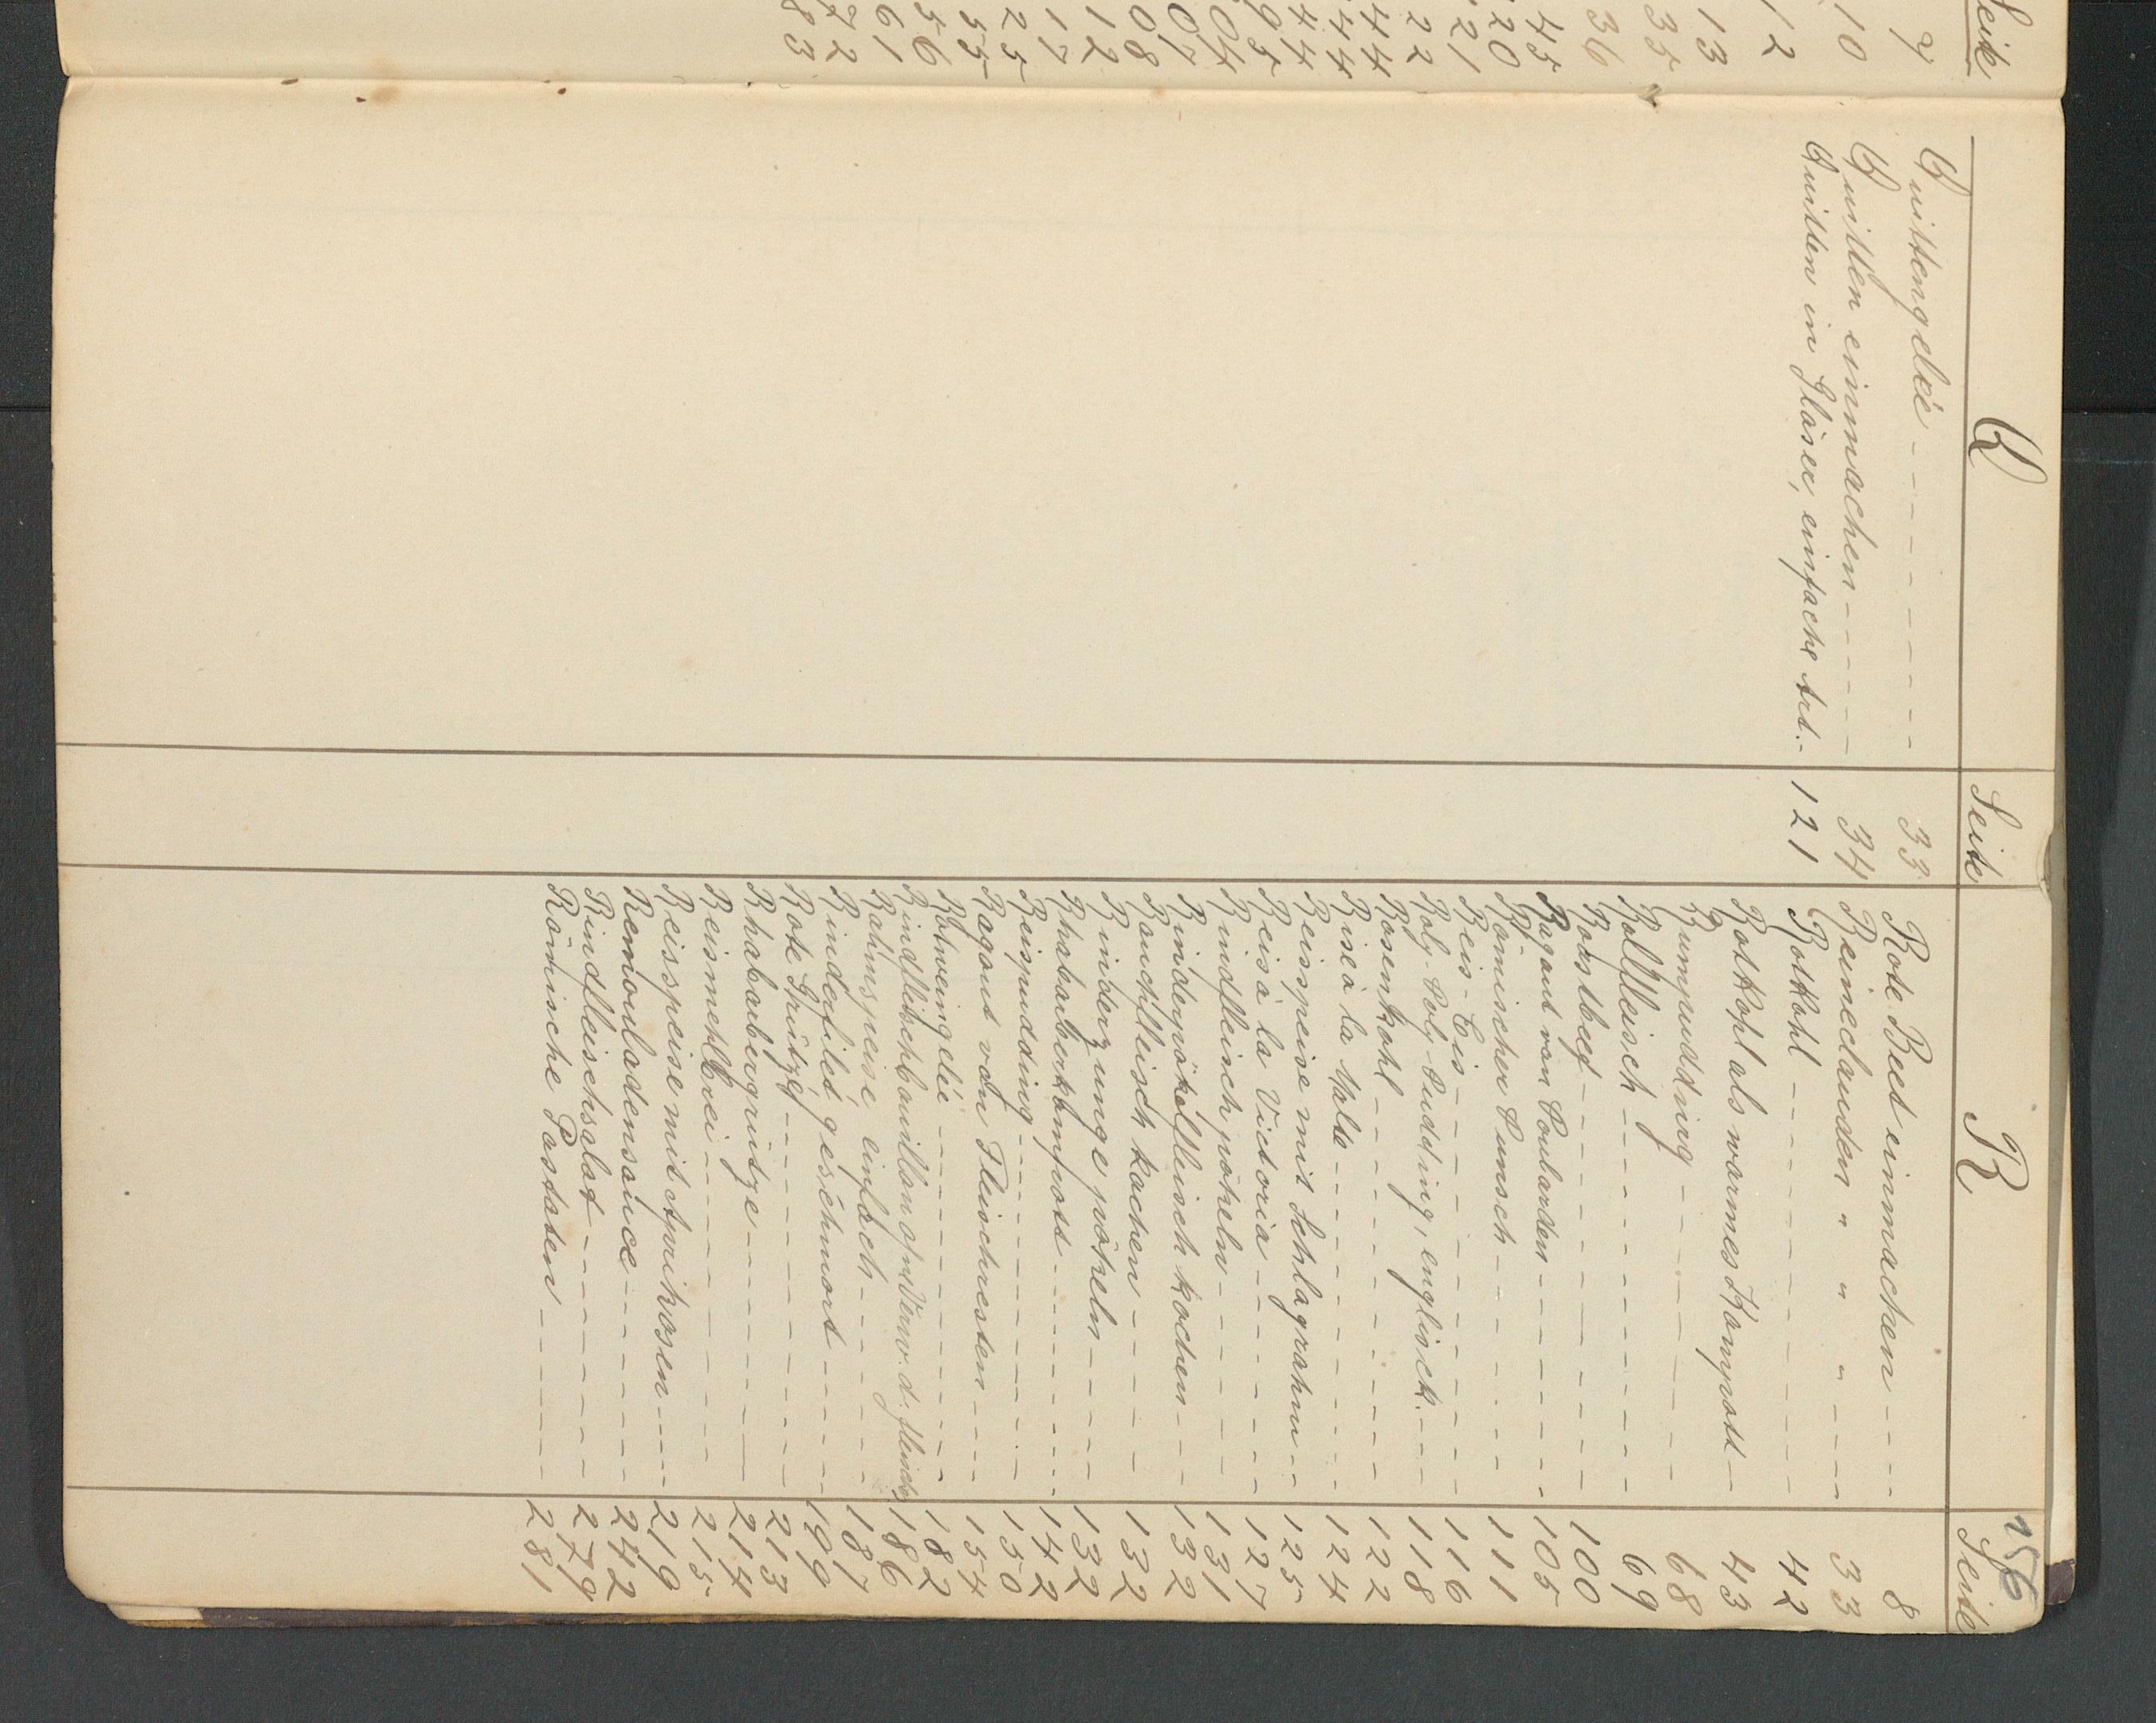 Seite
9
10
12
13
35
36
45
20
21
22
44
44
44
95
04
07
08
12
17
25
55
56
61
72
83
Q Seite
Quittengelée - - - - - - - - - 33
Quitten einmachen - - - - - - 34
Quitten in Gläser, einfache Art. - 121
256
R Seite
Rote Beet einmachen - - - - 8
Reineclauden " " " - - - - 33
Rotkohl - - - - - - - - - - - 42
Rotkohl als warmes Kompott - 43
Rumpudding - - - - - - - - 68
Rollfleisch - - - - - - - - - - 69
Roastbeef - - - - - - - - - - 100
Ragout von Poularden - - - - - - 105
Römischer Punsch - - - - - - - 111
Reis-Eis - - - - - - - - - - - 116
Roly-Poly-Pudding, englisch. - - - 118
Rosenkohl - - - - - - - - - - 122
Ris à la Malta - - - - - - - - - 124
Reisspeise mit Schlagrahm - - 125
Reis à la Victoria - - - - - - - 127
Rindfleisch pökeln - - - - - - 131
Rinderpökelfleisch kochen - - - 132
Rauchfleisch kochen - - - - - 132
Rinderzunge pökeln - - - - 132
Rhabarberkompott - - - - - - - 142
Reispudding - - - - - - - - - 150
Ragout von Fleischresten - - - 154
Rotweingelée - - - - - - - - - 182
Rindfleischbouillon ohne Verw. d. Fleisches 186
Rahmspeise einfach - - - - - - 187
Rinderfilet, geschmort - - - - - 199
Rote Grütze - - - - - - - - - 213
Rhabarbergrütze - - - - - - - 214
Reismehlbrei - - - - - - - - - 215
Reisspeise mit Aprikosen - - - - 219
Remouladensauce - - - - - - - 242
Rindfleischsalat - - - - - - - 279
Römische Pastaten - - - - - - 281